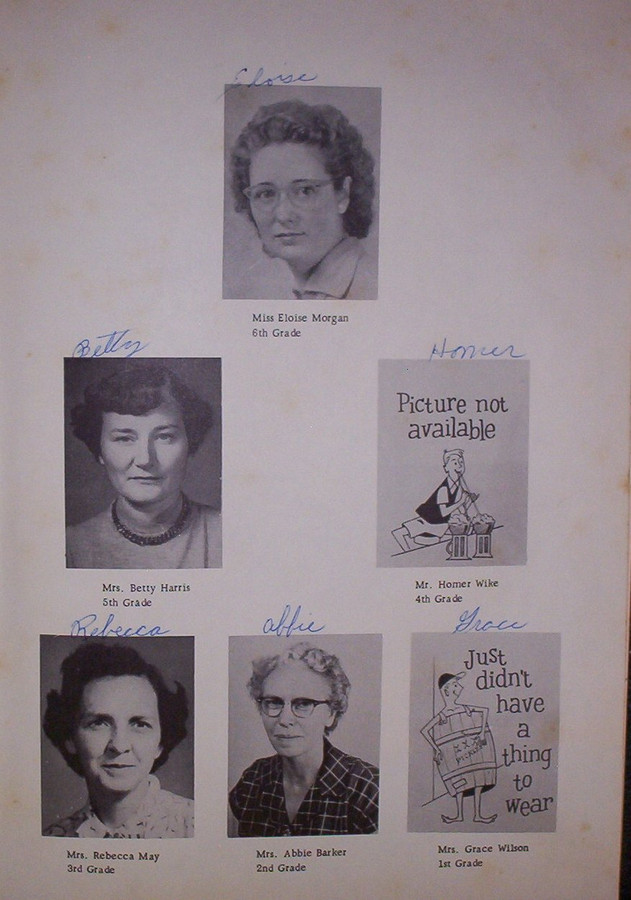 Eloise
Miss Eloise Morgan
6th Grade
Betty
Mrs. Betty Harris
5th Grade
Homer
Picture not
available
Mr. Homer Wike
4th Grade
Rebecca
Mrs. Rebecca May
3rd Grade
Abbie
Mrs. Abbie Barker
2nd Grade
Grace
Just
didn't
have
a
thing
to
wear
XXX
PICKLES
Mrs. Grace Wilson
1st Grade